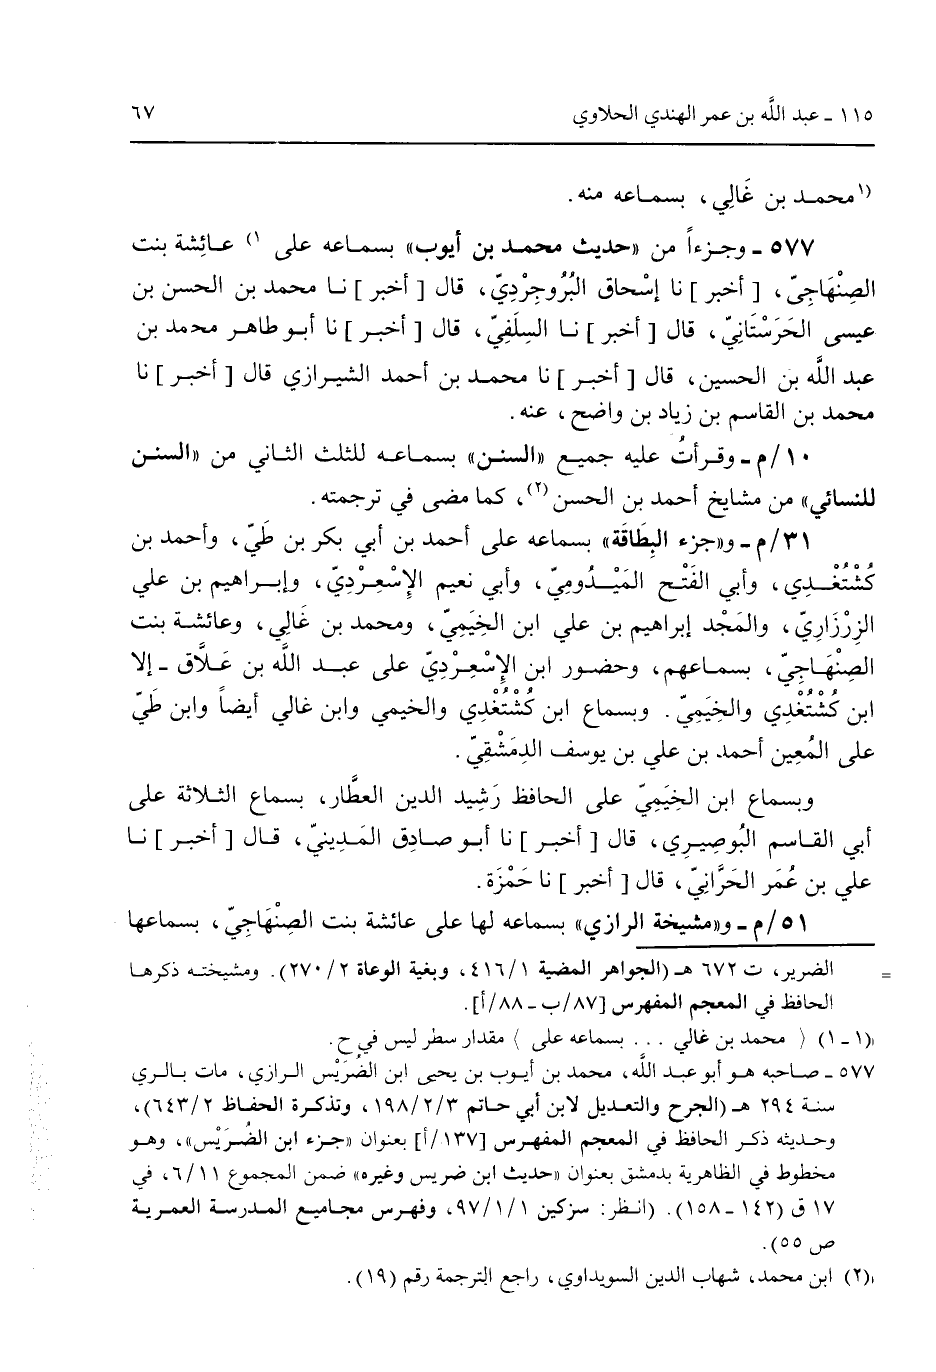 ١١٥ ـ عبد اللَّه بن عمر الهندي الحلاوي ٦٧
(١محمد بن غَالِي، بسماعه منه.
٥٧٧ ـ وجزءاً من «حديث محمد بن أيوب» بسماعه على ١) عائِشة بنت
الصِنْهَاجِيّ، [أخبر] نا إسْحاق البُرُوجِرْدِيّ، قال [أخبر] نا محمد بن الحسن بن
عيسى الحَرَسْتَانِيّ، قال [أخبر] نا السِلَفِيّ، قال [أخبر] نا أبو طاهر محمد بن
عبد اللَّه بن الحسين، قال [أخبر] نا محمد بن أحمد الشيرازي قال [أخبر] نا
محمد بن القاسم بن زياد بن واضح، عنه.
١٠/م ـ وقرأتُ عليه جميع «السنن» بسماعه للثلث الثاني من «السنن
للنسائي» من مشايخ أحمد بن الحسن(٢)، كما مضى في ترجمته.
٣١/م ـ و«جزء البِطَاقَة» بسماعه على أحمد بن أبي بكر بن طَيّ، وأحمد بن
كُشْتُغْدِي، وأبي الفَتْح المَيْدُومِيّ، وأبي نعيم الإسْعِرْدِيّ، وإبراهيم بن علي
الزِرْزَارِيّ، والمَجْد إبراهيم بن علي ابن الخِيَمِيّ، ومحمد بن غَالِي، وعائشة بنت
الصِنْهَاجِيّ، بسماعهم، وحضور ابن الإسْعِرْدِيّ على عبد اللَّه بن عَلاَّق ـ إلا
ابن كُشْتُغْدِي والخِيَمِيّ. وبسماع ابن كُشْتُغْدِي والخيمي وابن غالي أيضاً وابن طَيّ
على المُعِين أحمد بن علي بن يوسف الدِمَشْقِيّ.
وبسماع ابن الخِيَمِيّ على الحافظ رَشِيد الدين العطَّار، بسماع الثلاثة على
أبي القاسم البُوصِيرِي، قال [أخبر] نا أبو صادِق المَدِينيّ، قال [أخبر] نا
علي بن عُمَر الحَرَّانِيّ، قال [أخبر] نا حَمْزَة.
٥١/م ـ و«مشيخة الرازي» بسماعه لها على عائشة بنت الصِنْهَاجِيّ، بسماعها
= الضرير، ت ٦٧٢ هـ (الجواهر المضية ٤١٦/١، وبغية الوعاة ٢٧٠/٢). ومشيخته ذكرها
الحافظ في المعجم المفهرس [٨٧/ب ـ ٨٨/أ].
(١ـ١) ⟨ محمد بن غالي ... بسماعه على ⟩ مقدار سطر ليس في ح.
٥٧٧ ـ صاحبه هو أبو عبد اللَّه، محمد بن أيوب بن يحيى ابن الضُرَيْس الرازي، مات بالري
سنة ٢٩٤ هـ (الجرح والتعديل لابن أبي حاتم ١٩٨/٢/٣، وتذكرة الحفاظ ٦٤٣/٢)،
وحديثه ذكر الحافظ في المعجم المفهرس [١٣٧/أ] بعنوان «جزء ابن الضُرَيْس»، وهو
مخطوط في الظاهرية بدمشق بعنوان «حديث ابن ضريس وغيره» ضمن المجموع ٦/١١، في
١٧ ق (١٤٢ ـ ١٥٨). (انظر: سزكين ٩٧/١/١، وفهرس مجاميع المدرسة العمرية
ص ٥٥).
(٢) ابن محمد، شهاب الدين السويداوي، راجع الترجمة رقم (١٩).